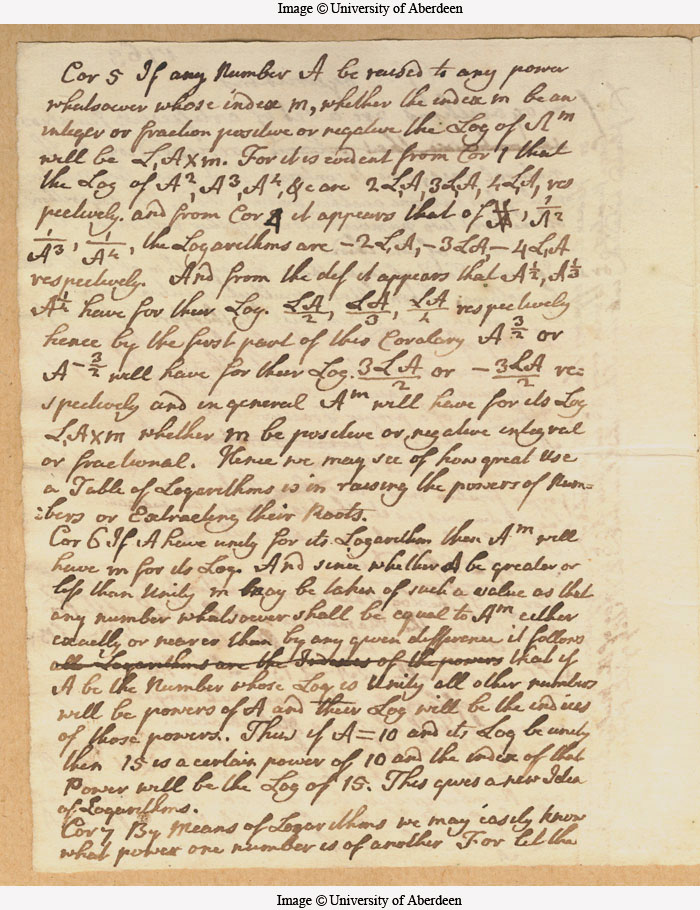 Image © University of Aberdeen
Cor 5 If any Number A be raised to any power
whatsoever whose index m, whether the index m be an
integer or fraction positive or negative the Log of A^m
will be L,A×m. For it is evident from Cor 1 that
the Log of A^2, A^3, A^4, &c are 2L,A, 3L,A, 4L,A, res
pectively. and from Cor 4 it appears that of 1/A^2
1/A^3, 1/A^4, the Logarithms are -2L,A, -3LA -4L,A
respectively. And from the def it appears that A^1/2, A^1/3
A^1/4 have for their Log. LA/2, LA/3, LA/4 respectively
hence by the first part of this Corolary A^3/2 or
A^-3/2 will have for their Log. 3LA/2 or -3LA/2 re=
spectively and in general A^m will have for its Log
L,A×m whether m be positive or negative integral
or fractional. Hence we may see of how great Use
a Table of Logarithms is in raising the powers of Num=
=bers or Extracting their Roots.
Cor 6 If A have unity for its Logarithm then A^m will
have m for its Log. And since whether A be greater or
less than Unity m may be taken of such a value as that
any number whatsoever shall be equal to A^m either
exactly or nearer than by any given difference it follows
all Logarithms are the Indexes of the powers that if
A be the Number whose Log is Unity all other numbers
will be powers of A and their Log will be the indices
of those powers. Thus if A=10 and its Log be unity
then 15 is a certain power of 10 and the index of that
Power will be the Log of 15. This gives a new Idea
of Logarithms.
Cor 7 By Means of Logarithms we may easily know
what power one number is of another For let the
Image © University of Aberdeen